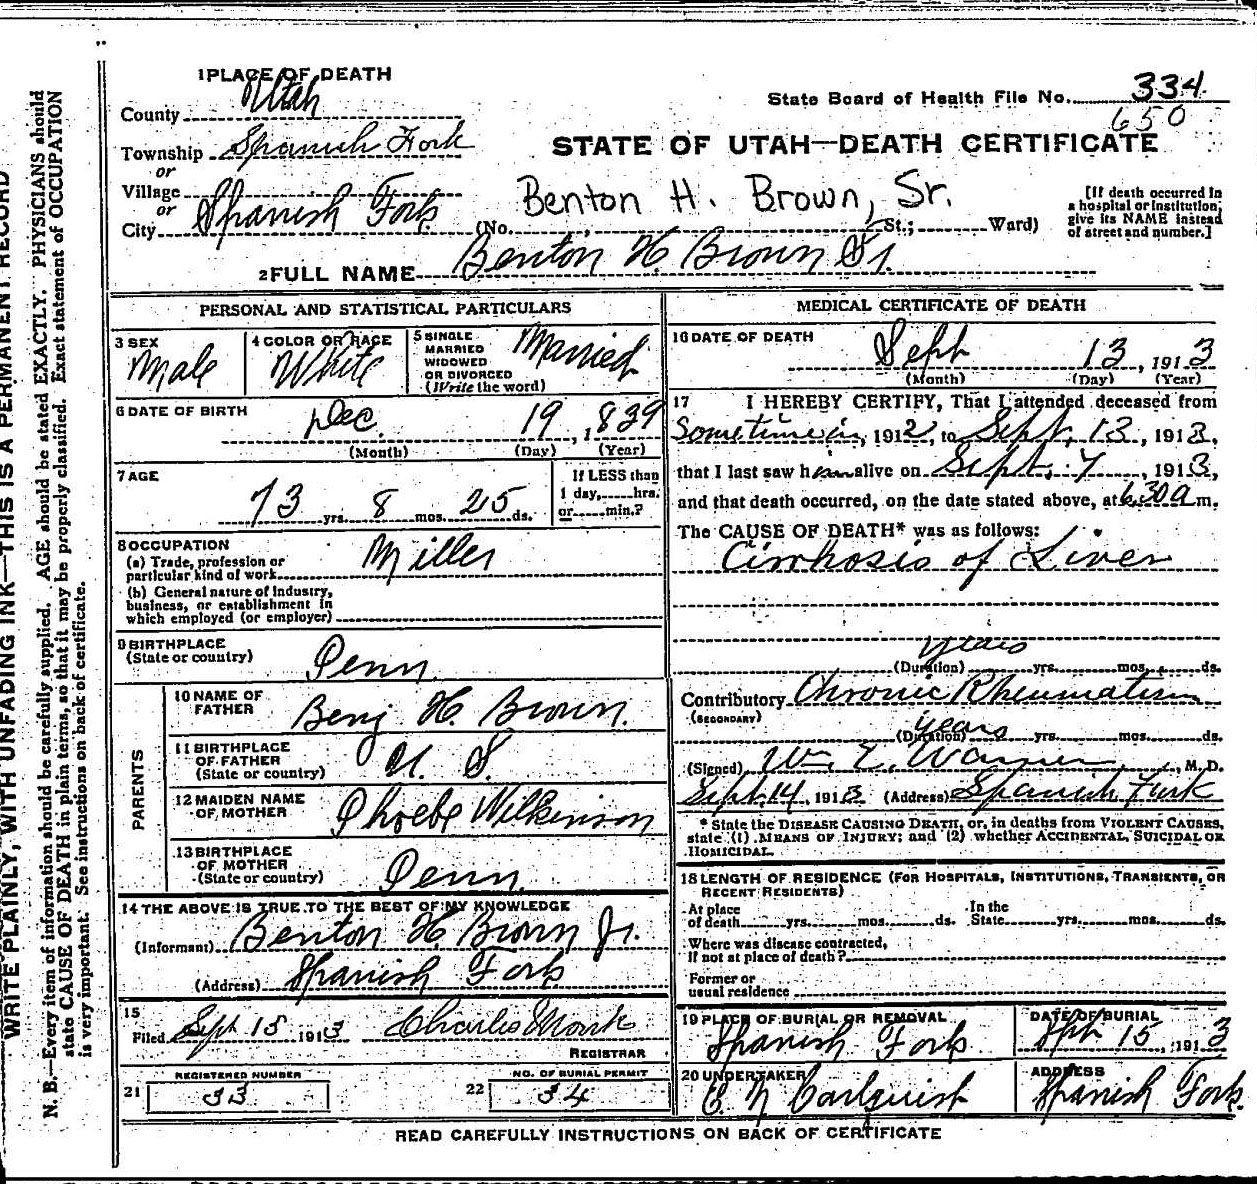 1 PLACE OF DEATH
County Utah
Township Spanish Fork
or
Village
or
City Spanish Fork (No. , St.; Ward)
State Board of Health File No. 334
650
STATE OF UTAH—DEATH CERTIFICATE
Benton H. Brown, Sr.
[If death occurred in
a hospital or institution,
give its NAME instead
of street and number.]
2 FULL NAME Benton H. Brown Sr.
PERSONAL AND STATISTICAL PARTICULARS
3 SEX
Male
4 COLOR OR RACE
White
5 SINGLE
MARRIED
WIDOWED
OR DIVORCED
(Write the word)
Married
6 DATE OF BIRTH
Dec. 19, 1839
(Month) (Day) (Year)
7 AGE
73 yrs. 8 mos. 25 ds.
If LESS than
1 day, hrs.
or min.?
8 OCCUPATION
(a) Trade, profession or
particular kind of work Miller
(b) General nature of Industry,
business, or establishment in
which employed (or employer)
9 BIRTHPLACE
(State or country) Penn.
PARENTS
10 NAME OF
FATHER Benj H. Brown.
11 BIRTHPLACE
OF FATHER
(State or country) U. S.
12 MAIDEN NAME
OF MOTHER Phoebe Wilkinson
13 BIRTHPLACE
OF MOTHER
(State or country) Penn.
14 THE ABOVE IS TRUE TO THE BEST OF MY KNOWLEDGE
(Informant) Benton H. Brown Jr.
(Address) Spanish Fork
15
Filed Sept 15 1913 Charles Monk
REGISTRAR
21 REGISTERED NUMBER
33
22 NO. OF BURIAL PERMIT
34
MEDICAL CERTIFICATE OF DEATH
16 DATE OF DEATH
Sept 13, 1913
(Month) (Day) (Year)
17 I HEREBY CERTIFY, That I attended deceased from
Sometime in, 1912, to Sept. 13, 1913,
that I last saw him alive on Sept. 7, 1913,
and that death occurred, on the date stated above, at 6.30 a m.
The CAUSE OF DEATH* was as follows:
Cirrhosis of Liver
years
(Duration) yrs. mos. ds.
Contributory Chronic Rheumatism
(SECONDARY)
years
(Duration) yrs. mos. ds.
(Signed) Wm. E. Warner, M. D.
Sept. 14, 1913 (Address) Spanish Fork
* State the DISEASE CAUSING DEATH, or, in deaths from VIOLENT CAUSES,
state (1) MEANS OF INJURY; and (2) whether ACCIDENTAL, SUICIDAL OR
HOMICIDAL.
18 LENGTH OF RESIDENCE (FOR HOSPITALS, INSTITUTIONS, TRANSIENTS, OR
RECENT RESIDENTS)
At place
of death yrs. mos. ds.
In the
State yrs. mos. ds.
Where was disease contracted,
if not at place of death?
Former or
usual residence
19 PLACE OF BURIAL OR REMOVAL
Spanish Fork
DATE OF BURIAL
Sept 15, 1913
20 UNDERTAKER
C N Carlquist
ADDRESS
Spanish Fork.
READ CAREFULLY INSTRUCTIONS ON BACK OF CERTIFICATE
WRITE PLAINLY, WITH UNFADING INK—THIS IS A PERMANENT RECORD
N. B.—Every item of information should be carefully supplied. AGE should be stated EXACTLY. PHYSICIANS should
state CAUSE OF DEATH in plain terms, so that it may be properly classified. Exact statement of OCCUPATION
is very important. See instructions on back of certificate.